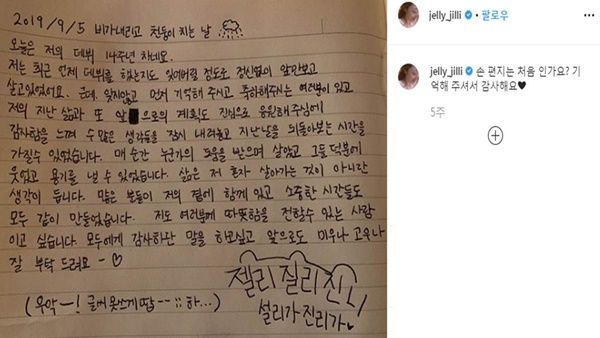 2019/9/5 비가내리고 천둥이 치는 날
오늘은 저의 데뷔 14주년 차네요.
저는 최근 언제 데뷔를 했는지도 잊어버릴 정도로 정신없이 앞만보고
살고있었어요. 근데, 잊지않고 먼저 기억해 주시고 축하해주시는 여러분이 있고
저의 지난 삶과 또 앞으로의 계획도 진심으로 응원해 주심에
감사함을 느껴 수많은 생각들을 잠시 내려놓고 지난날을 되돌아보는 시간을
가질수 있었습니다. 매 순간 누군가의 도움을 받으며 살았고 그들 덕분에
웃었고 용기를 낼 수 있었습니다. 삶은 저 혼자 살아가는 것이 아니란
생각이 듭니다. 많은 분들이 저의 곁에 함께 있고 소중한 시간들도
모두 같이 만들었습니다. 저도 여러분께 따뜻함을 전할수 있는 사람
이고 싶습니다. 모두에게 감사하단 말을 하고싶고 앞으로도 미우나 고우나
잘 부탁 드려요 - ♡
젤리 질리 진니
설리가 진리가♥
(우악-! 글씨 못쓰게땁--;; 하...)
jelly_jilli • 팔로우
jelly_jilli 손 편지는 처음 인가요? 기
억해 주셔서 감사해요♥
5주